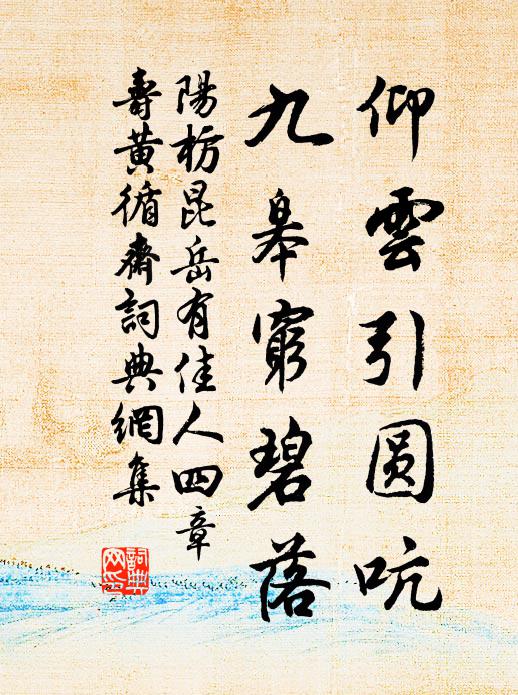 仰雲引圆吭
九皋窮碧落
陽枋昆岳有佳人四章
壽黄循齋詞典網集
詞典网印